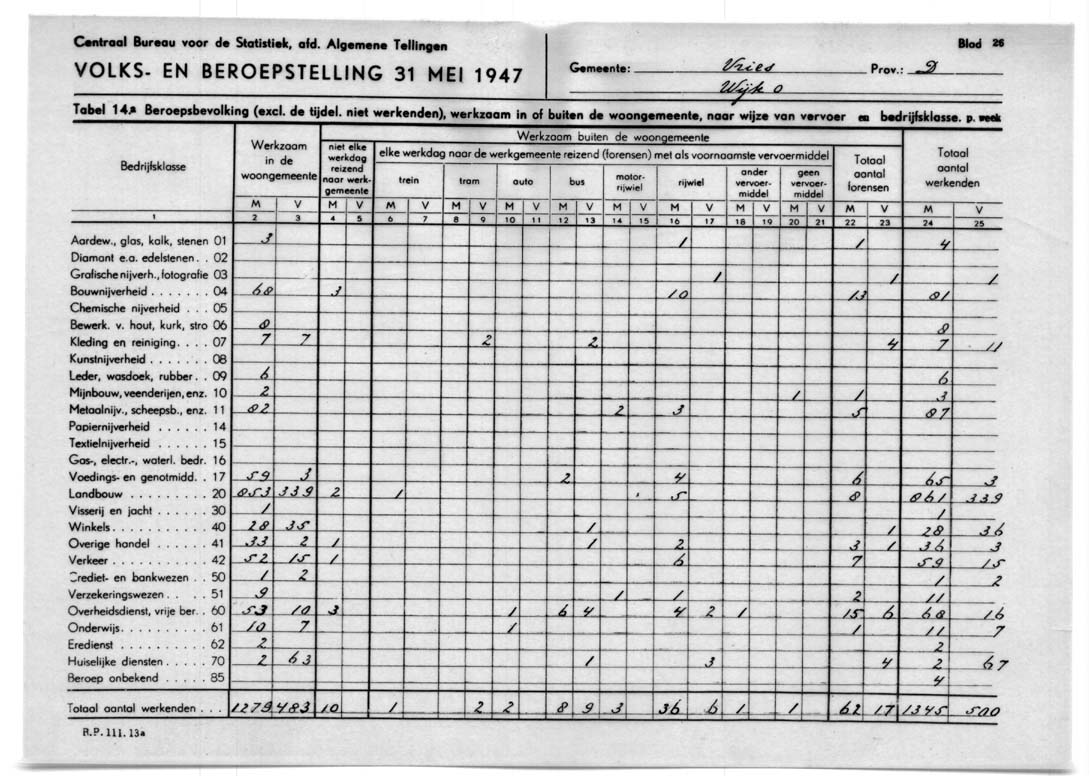 Centraal Bureau voor de Statistiek, afd. Algemene Tellingen Blad 26
VOLKS- EN BEROEPSTELLING 31 MEI 1947 Gemeente: Vries Prov.: D
Wijk O
Tabel 14.a Beroepsbevolking (excl. de tijdel. niet werkenden), werkzaam in of buiten de woongemeente, naar wijze van vervoer en bedrijfsklasse. p. week
Bedrijfsklasse
Werkzaam in de woongemeente
Werkzaam buiten de woongemeente
niet elke werkdag reizend naar werk-gemeente
elke werkdag naar de werkgemeente reizend (forensen) met als voornaamste vervoermiddel
trein tram auto bus motor-rijwiel rijwiel ander vervoer-middel geen vervoer-middel
Totaal aantal forensen
Totaal aantal werkenden
M V M V M V M V M V M V M V M V M V M V M V M V
1 2 3 4 5 6 7 8 9 10 11 12 13 14 15 16 17 18 19 20 21 22 23 24 25
Aardew., glas, kalk, stenen 01 3 1 1 4
Diamant e.a. edelstenen. . 02
Grafische nijverh., fotografie 03 1 1 1
Bouwnijverheid . . . . . . . 04 68 3 10 13 81
Chemische nijverheid . . . 05
Bewerk. v. hout, kurk, stro 06 8 8
Kleding en reiniging. . . . 07 7 7 2 2 4 7 11
Kunstnijverheid . . . . . . 08
Leder, wasdoek, rubber. . 09 6 6
Mijnbouw, veenderijen, enz. 10 2 1 1 3
Metaalnijv., scheepsb., enz. 11 82 2 3 5 87
Papiernijverheid . . . . . . 14
Textielnijverheid . . . . . 15
Gas-, electr.-, waterl. bedr. 16
Voedings- en genotmidd. . 17 59 3 2 4 6 65 3
Landbouw . . . . . . . . . 20 853 339 2 1 5 8 861 339
Visserij en jacht . . . . . 30 1 1
Winkels . . . . . . . . . . 40 28 35 1 1 28 36
Overige handel . . . . . . 41 33 2 1 1 2 3 1 36 3
Verkeer . . . . . . . . . . 42 52 15 1 6 7 59 15
Crediet- en bankwezen . . 50 1 2 1 2
Verzekeringswezen . . . . 51 9 1 1 2 11
Overheidsdienst, vrije ber. . 60 53 10 3 1 6 4 4 2 1 15 6 68 16
Onderwijs. . . . . . . . . . 61 10 7 1 1 11 7
Eredienst . . . . . . . . . 62 2 2
Huiselijke diensten . . . . . 70 2 63 1 3 4 2 67
Beroep onbekend . . . . . 85 4
Totaal aantal werkenden . . . 1279 483 10 1 2 2 8 9 3 36 6 1 1 62 17 1345 500
R.P. 111. 13a